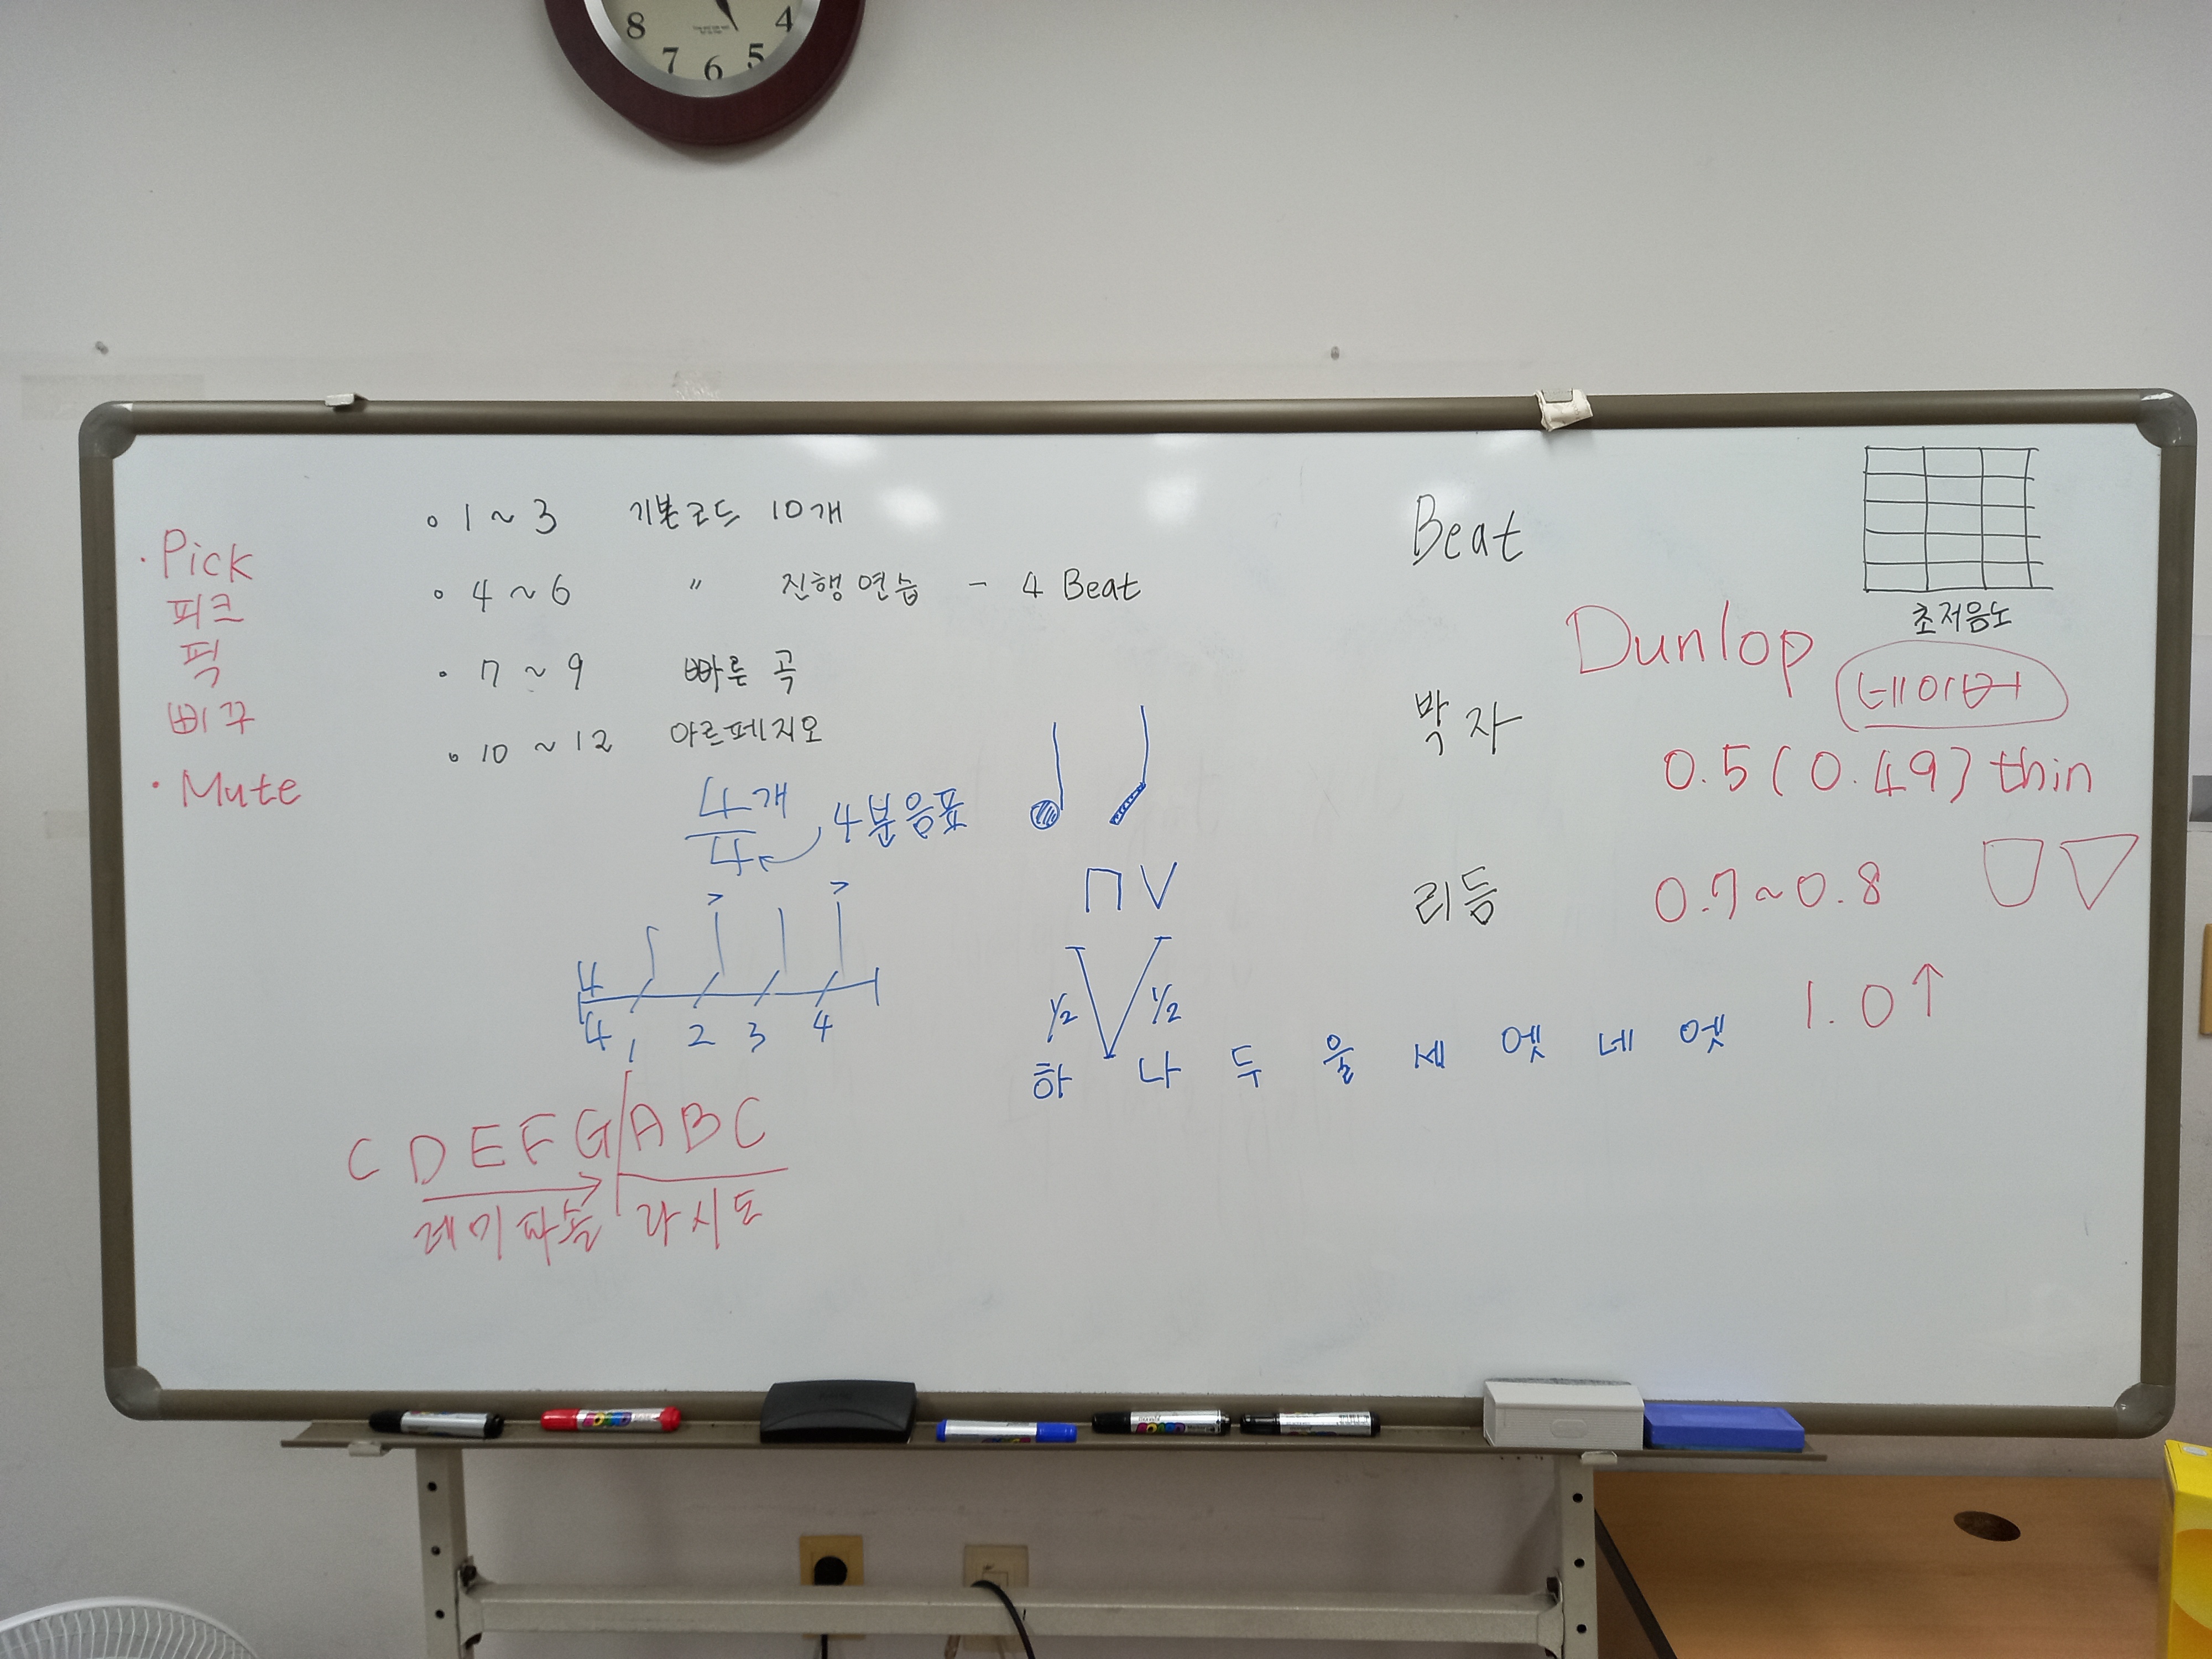 8 7 6 5 4
· Pick
피크
픽
삐꾸
· Mute
∘ 1 ~ 3 기본코드 10개
∘ 4 ~ 6 〃 진행연습 - 4 Beat
· 7 ~ 9 빠른 곡
∘ 10 ~ 12 아르페지오
4개
4
4분음표
> >
4
4
1 2 3 4
C D E F G A B C
레미파솔 라시도
⊓ V
1/2 1/2
하 나 두 울 세 엣 네 엣
Beat
박자
리듬
초저음노
Dunlop
네이버
0.5 (0.49) thin
0.7~0.8
1.0↑